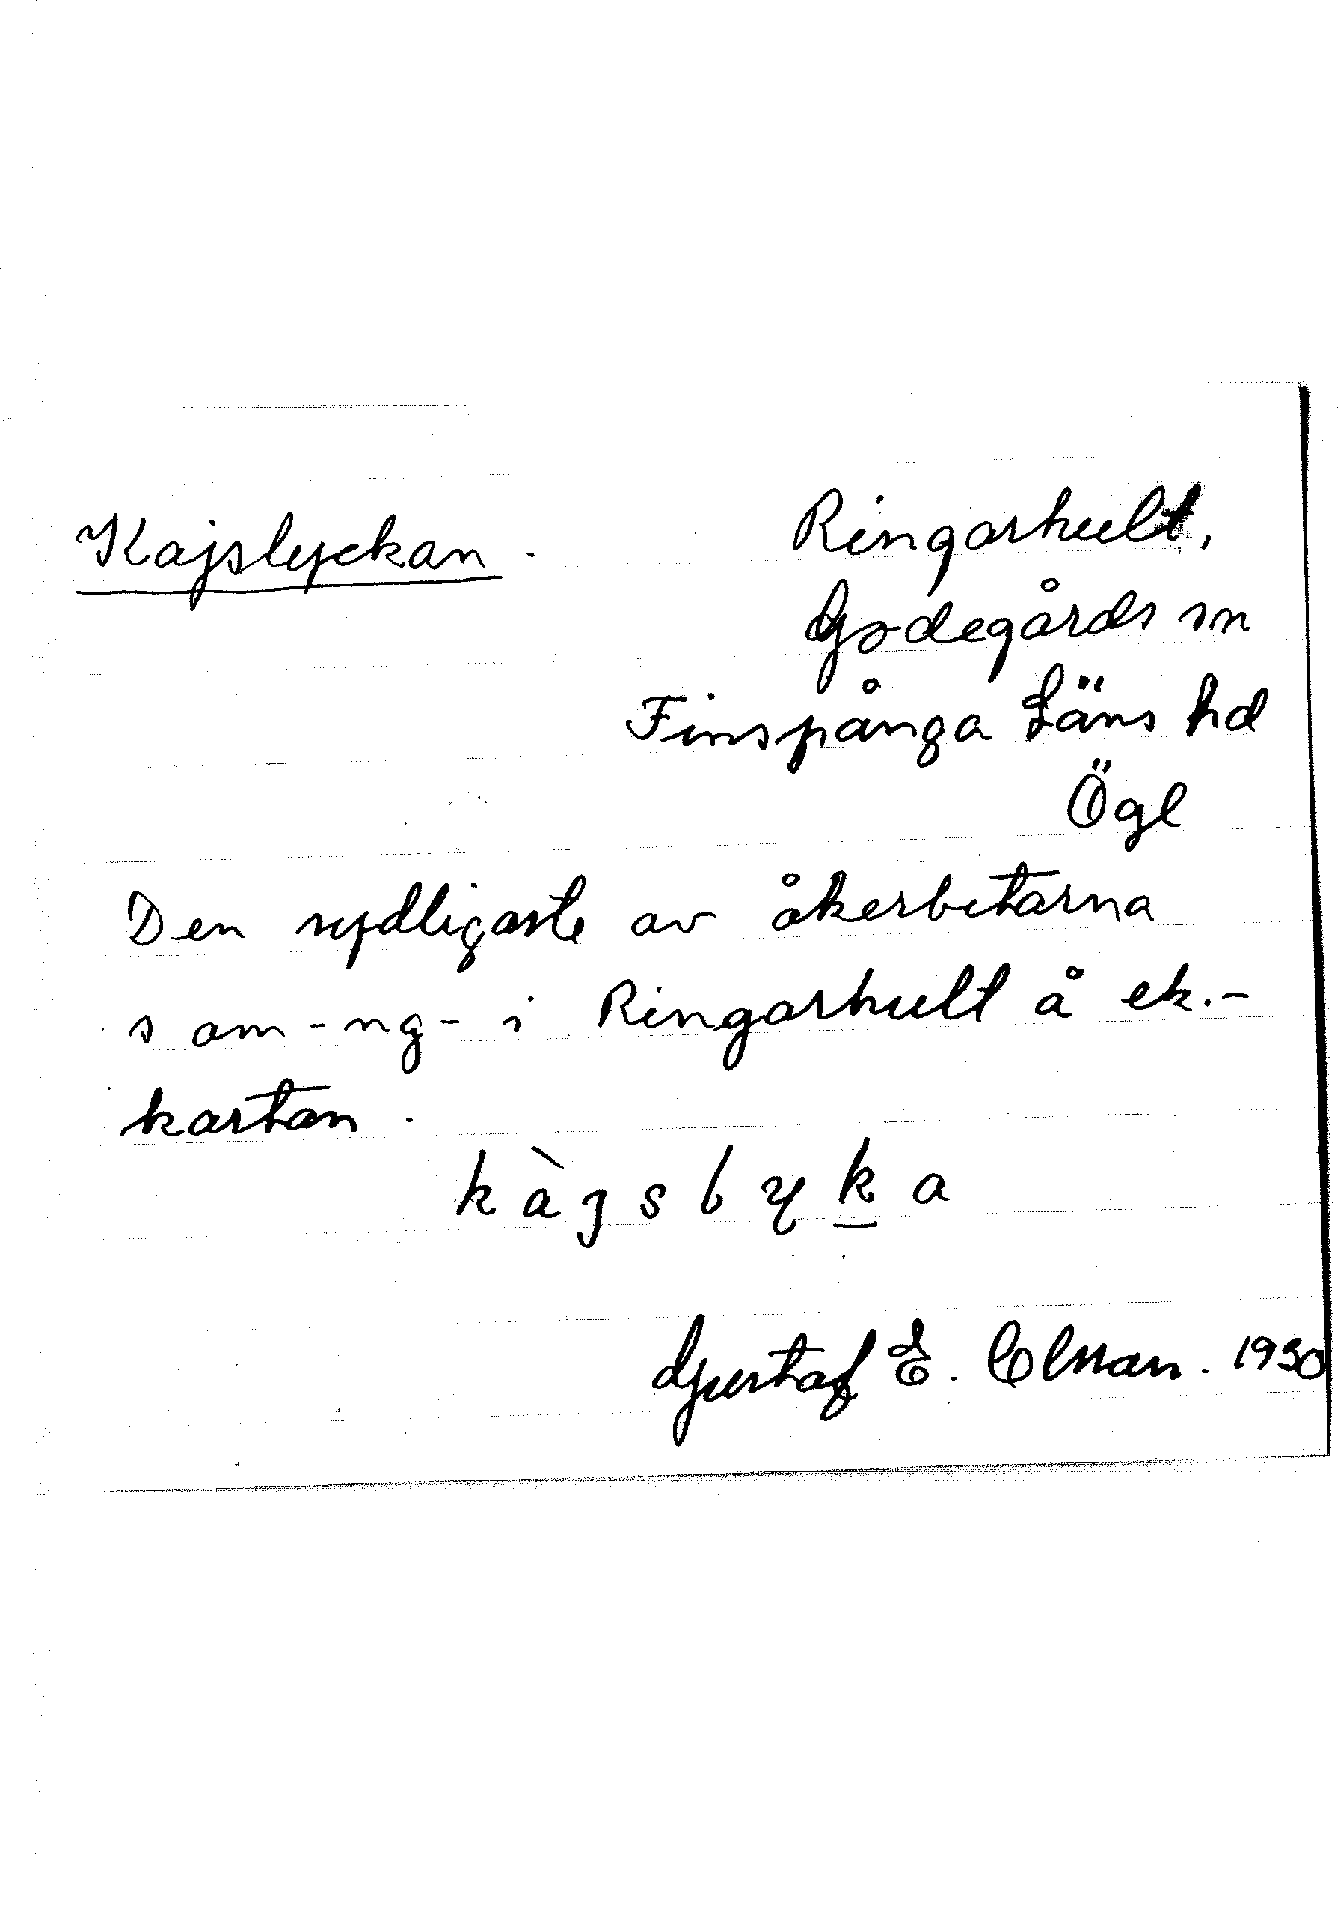 Kajslyckan. Ringarhult,
Godegårds sn
Finspånga Läns hd
Ögl
Den sydligaste av åkerbitarna
s om -ng- i Ringarhult å ek.-
kartan.
k à j s l y k a
Gustaf E. Elman. 1930